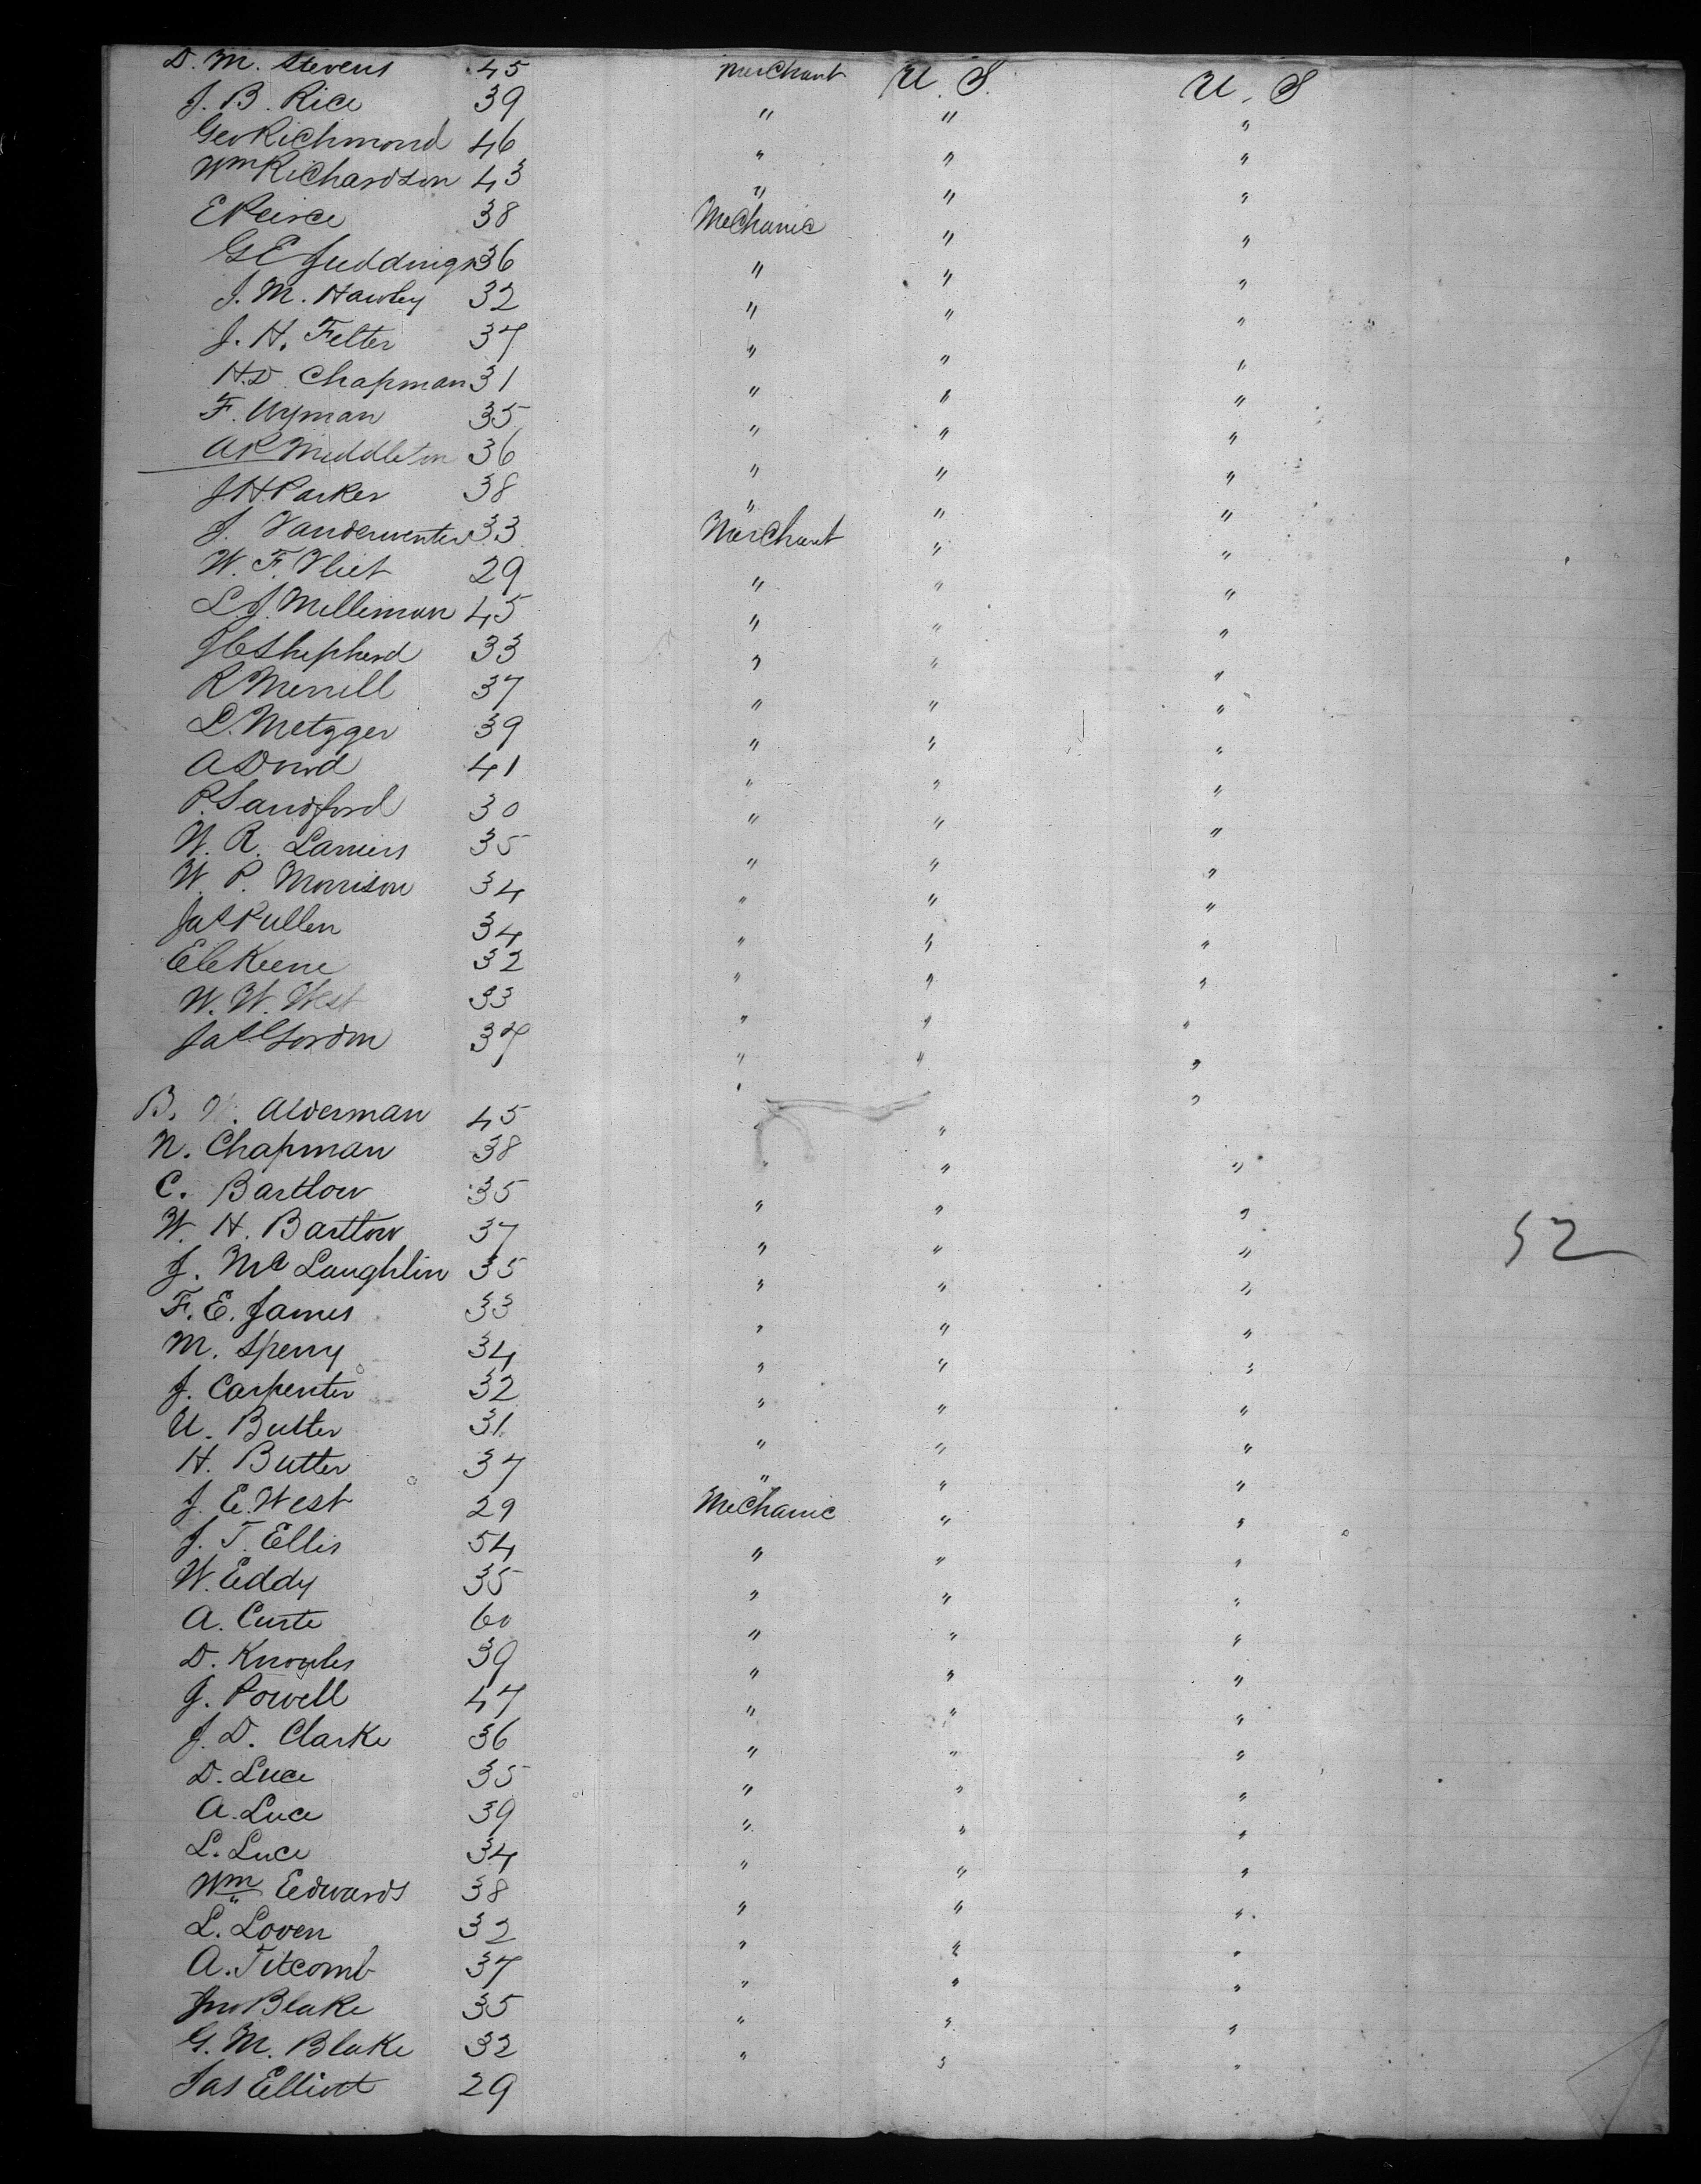 D. M. Stevens 45 Merchant U. S. U. S
J. B. Rice 39 " " "
Geo Richmond 46 " " "
Wm Richardson 43 " " "
E Peirce 38 Mechanic " "
G E Juddings 36 " " "
J. M. Hawley 32 " " "
J. H. Felter 37 " " "
H. D. Chapman 31 " " "
F. Wyman 35 " " "
A P Middleton 36 " " "
J H Parker 38 " " "
J. Vanderventer 33 Merchant " "
W. F. Vliet 29 " " "
L. J. Milliman 45 " " "
J C Shepherd 33 " " "
R Merrill 37 " " "
L. Metzger 39 " " "
A 41 " " "
P. Sandford 30 " " "
W. R. Lamers 35 " " "
W. P. Morrison 34 " " "
Jas Pullen 34 " " "
E C Keene 32 " " "
W. W. West 33 " " "
Jas Gordon 37 " " "
B. Alderman 45 " " "
N. Chapman 38 " " "
C. Bartlow 35 " " "
W. H. Bartlow 37 " " " 52
J. Mc Laughlin 35 " " "
F. E. James 33 " " "
M. Sperry 34 " " "
J. Carpenter 32 " " "
U. Butler 31 " " "
H. Butler 37 " " "
J. E. West 29 Mechanic " "
J. T. Ellis 54 " " "
W. Eddy 35 " " "
A. Curte 60 " " "
D. Knowles 39 " " "
J. Powell 47 " " "
J. D. Clarke 36 " " "
D. Luce 35 " " "
A. Luce 39 " " "
L. Luce 34 " " "
Wm Edwards 38 " " "
L. Loven 32 " " "
A. Titcomb 37 " " "
Jno Blake 35 " " "
G. M. Blake 32 " " "
Jas Elliott 29